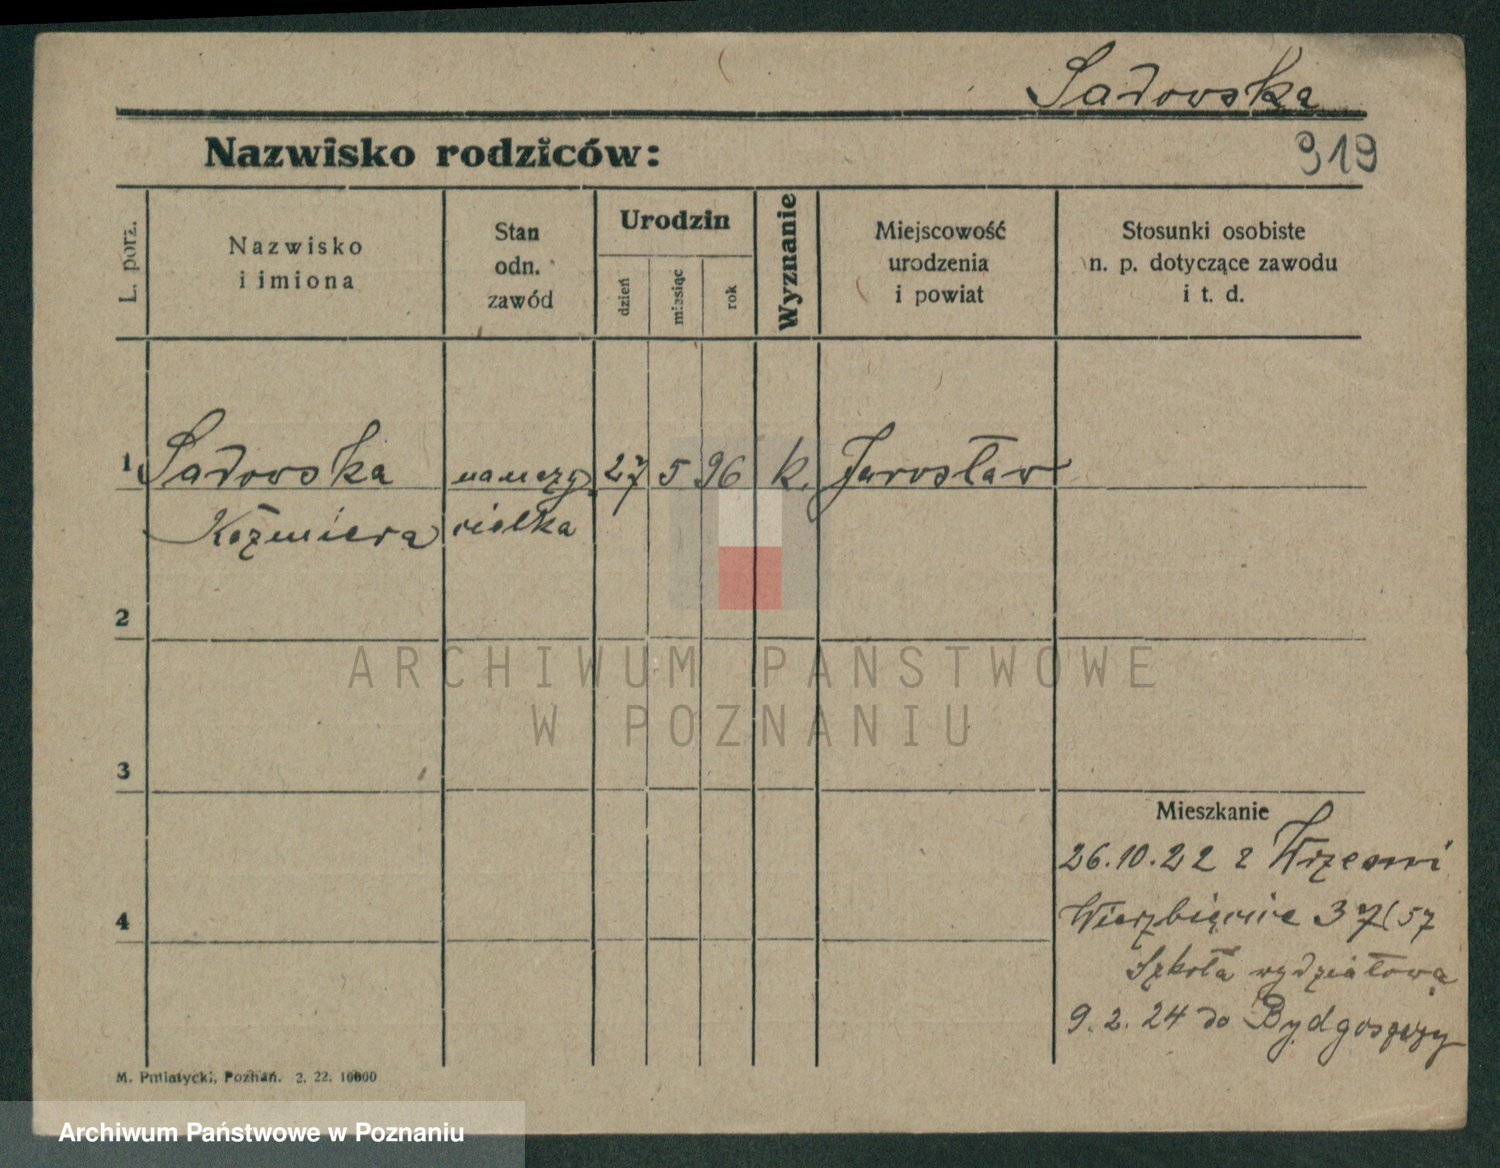 Sadowska
919
Nazwisko rodziców:
L. porz.
Nazwisko
i imiona
Stan
odn.
zawód
Urodzin
dzień
miesiąc
rok
Wyznanie
Miejscowość
urodzenia
i powiat
Stosunki osobiste
n. p. dotyczące zawodu
i t. d.
1 Sadowska nauczy 27 5 96 k. Jarosław
Kaźmiera cielka
2
3
4
Mieszkanie
26.10.22 z Wrześni
Wierzbięcice 37/57
Szkoła wydziałowa
9.2.24 do Bydgoszczy
M. Putiatycki, Poznań. 2. 22. 10000
ARCHIWUM PAŃSTWOWE
W POZNANIU
Archiwum Państwowe w Poznaniu